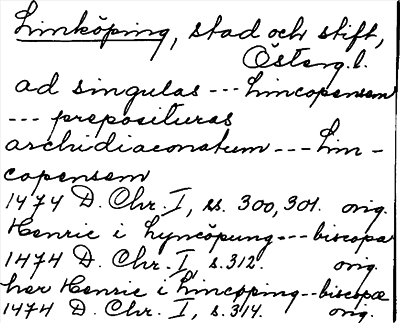 Linköping, stad och stift,
Österg.l.
ad singulas --- Lincopensem
--- preposituras
archidiaconatum --- Lin-
copensem
1474 D. Chr. I, ss. 300, 301. orig.
Henric i Lyncöpung --- biscopa
1474 D. Chr. I, s. 312. orig.
her Henric i Lincøping -- biscopæ
1474 D. Chr. I, s. 314. orig.